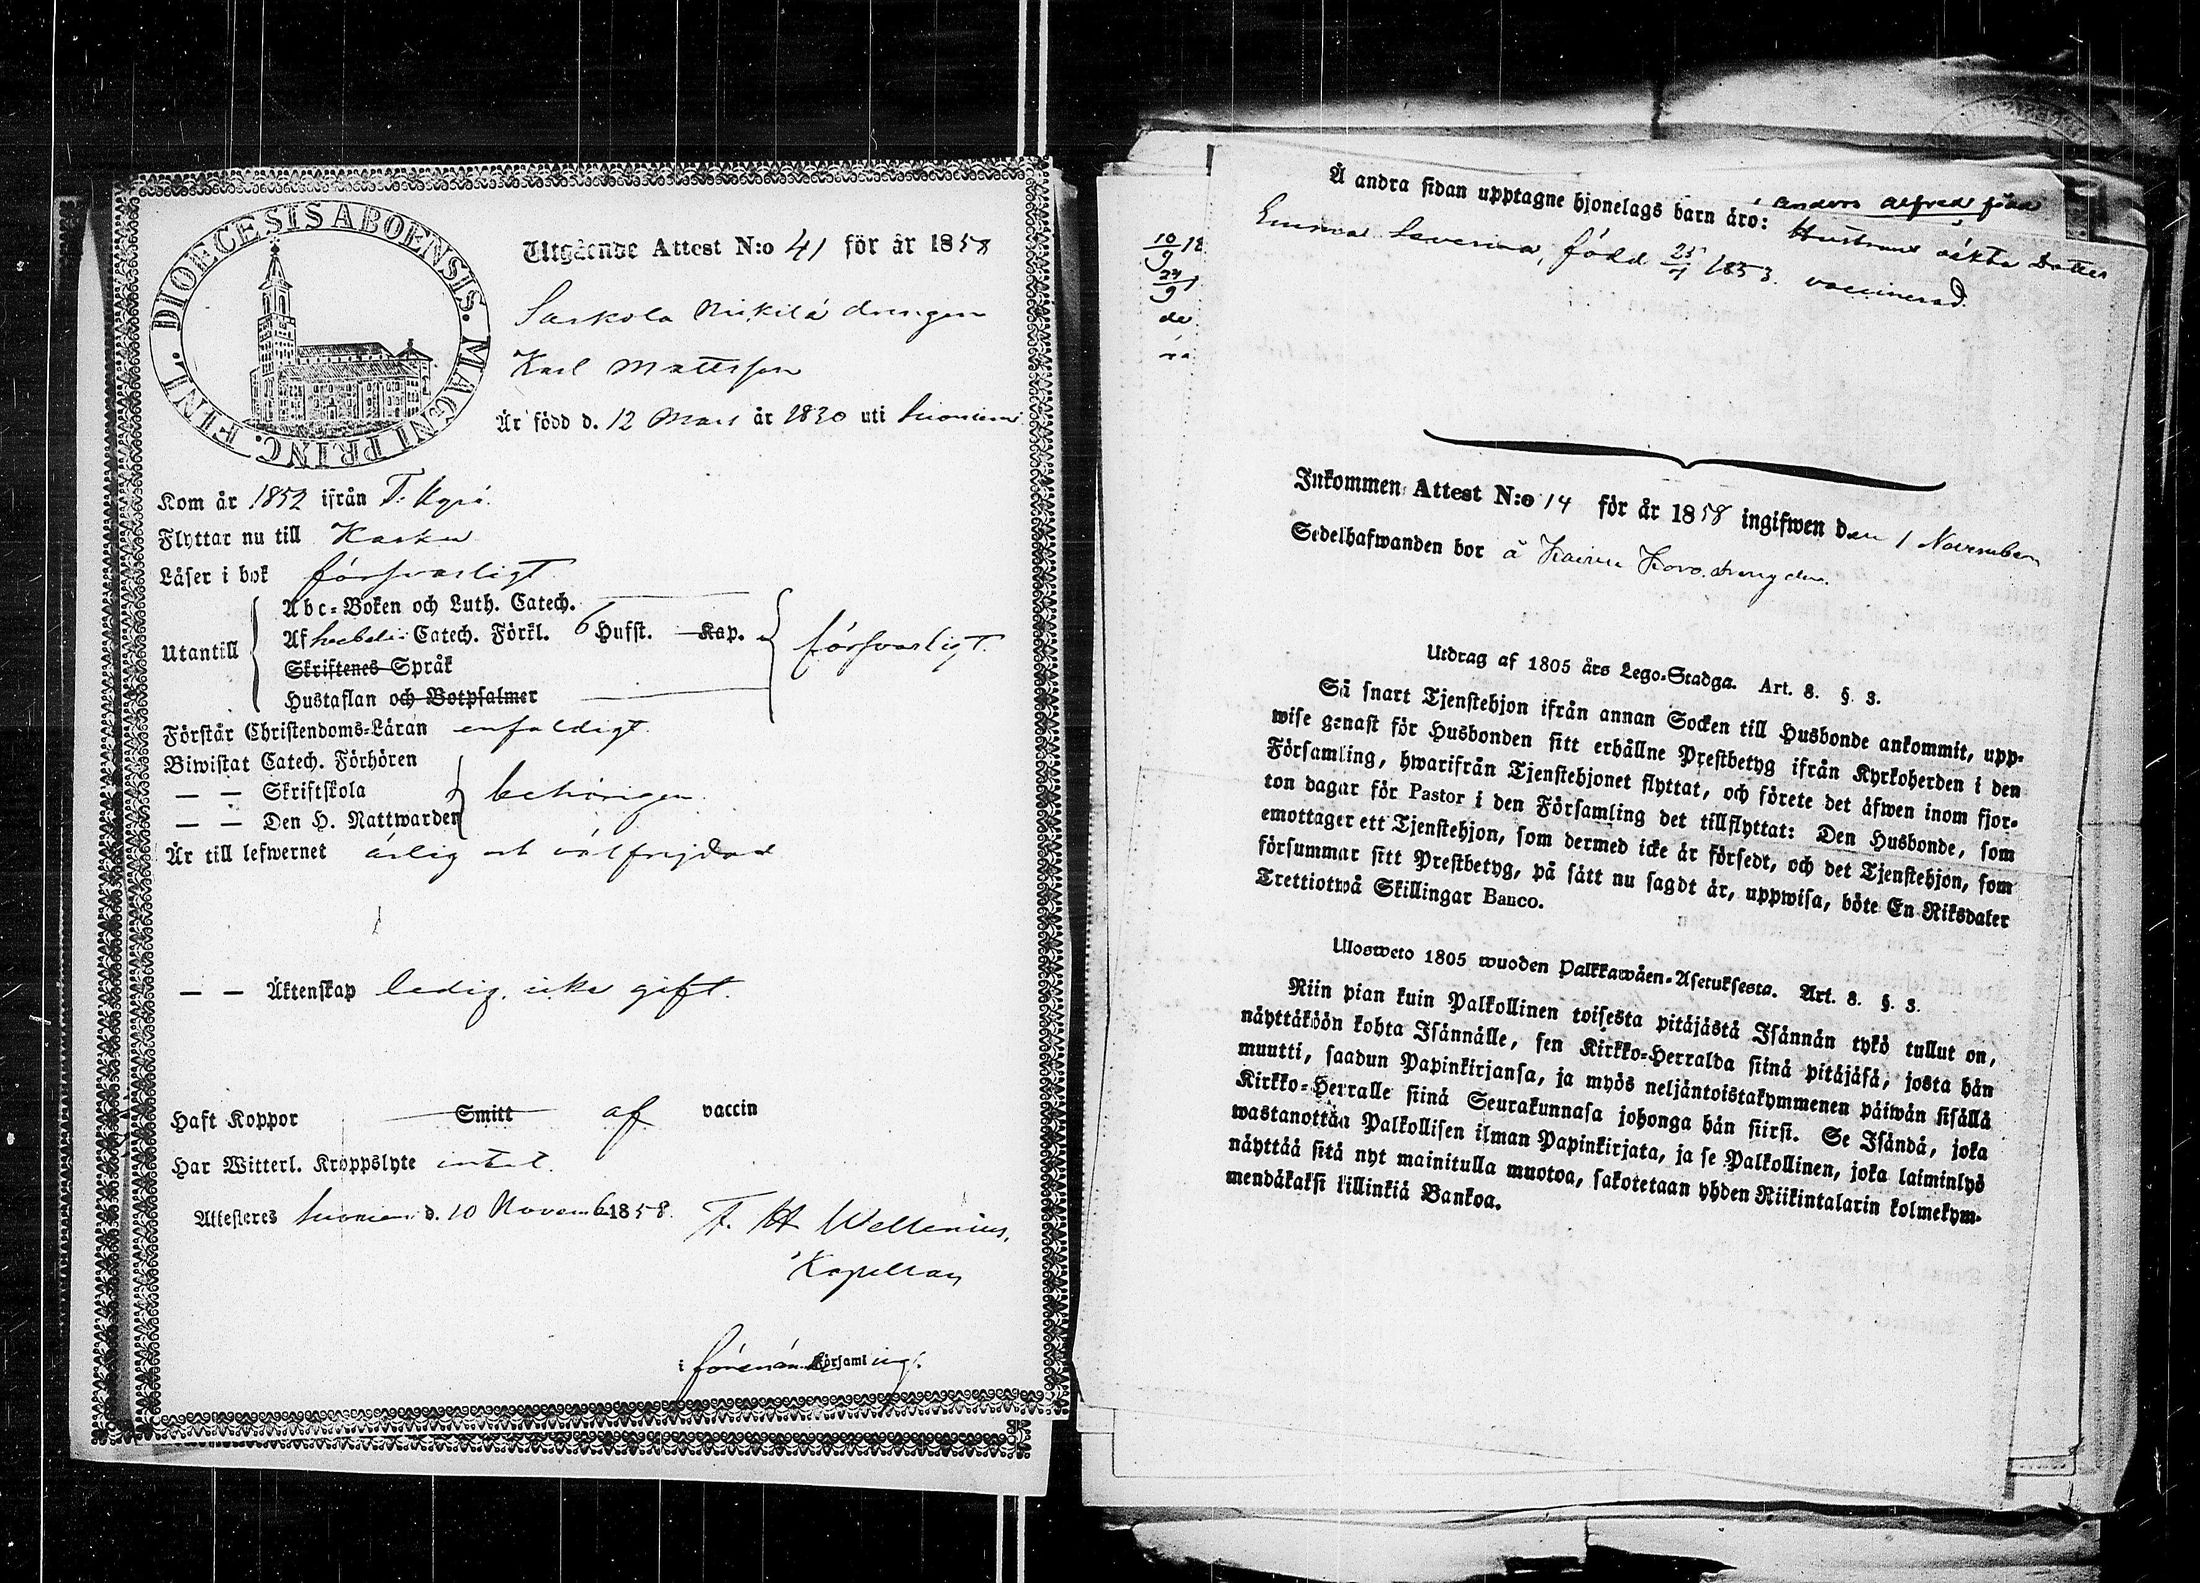 DIOECESIS ABOENSIS. MAGNI PRINC. FINL.
Utgående Attest N:o 41 för år 1858
Sarkola Nikilä drengen
Karl Mattsson
Är född d. 12 Mars år 1830 uti Suoniemi
Kom år 1852 ifrån T. Kyrö.
Flyttar nu till Karku
Läser i bok försvarligt.
Utantill
Abc-Boken och Luth. Catech.
Af Catech. Förkl. 6 Hufst. Kap.
försvarligt.
Skriftenes Språk
Hustaflan och Botpsalmer
Förstår Christendoms-Läran enfaldigt.
Biwistat Catech. Förhören
— — Skriftskola
behörigen.
— — Den H. Nattwarden
Är till lefwernet ärlig och välfrejdad
— — Äktenskap ledig, icke gift.
Haft Koppor Smitt af vaccin
Har Witterl. Kroppslyte intet.
Attesteres Suoniemi d. 10 Novemb. 1858. F. H Wellenius,
Kapellan
i förenämnde Församling.
10/9 18
24/9
de
Å andra sidan upptagne hjonelags barn äro: Anders Alfred född
Hustruns oäkta Dotter
Emma Severina, född 25/7 1853. vaccinerad.
Inkommen Attest N:o 14 för år 1858 ingifwen den 1 November
Sedelhafwanden bor å
Utdrag af 1805 års Lego-Stadga. Art. 8. §. 3.
Så snart Tjenstehjon ifrån annan Socken till Husbonde ankommit, upp-
wise genast för Husbonden sitt erhållne Prestbetyg ifrån Kyrkoherden i den
Församling, hwarifrån Tjenstehjonet flyttat, och förete det äfwen inom fjor-
ton dagar för Pastor i den Församling det tillflyttat: Den Husbonde, som
emottager ett Tjenstehjon, som dermed icke är försedt, och det Tjenstehjon, som
försummar sitt Prestbetyg, på sätt nu sagdt är, uppwisa, böte En Riksdaler
Trettiotwå Skillingar Banco.
Ulosweto 1805 wuoden Palkkawäen-Asetuksesta. Art. 8. §. 3.
Niin pian kuin Palkollinen toisesta pitäjästä Isännän tykö tullut on,
näyttäköön kohta Isännälle, sen Kirkko-Herralda siinä pitäjäsä, josta hän
muutti, saadun Papinkirjansa, ja myös neljäntoistakymmenen päiwän sisällä
Kirkko-Herralle siinä Seurakunnasa johonga hän siirsi. Se Isändä, joka
wastanottaa Palkollisen ilman Papinkirjata, ja se Palkollinen, joka laiminlyö
näyttää sitä nyt mainitulla muotoa, sakotetaan yhden Riikintalarin kolmekym-
mendäkaksi killinkiä Bankoa.